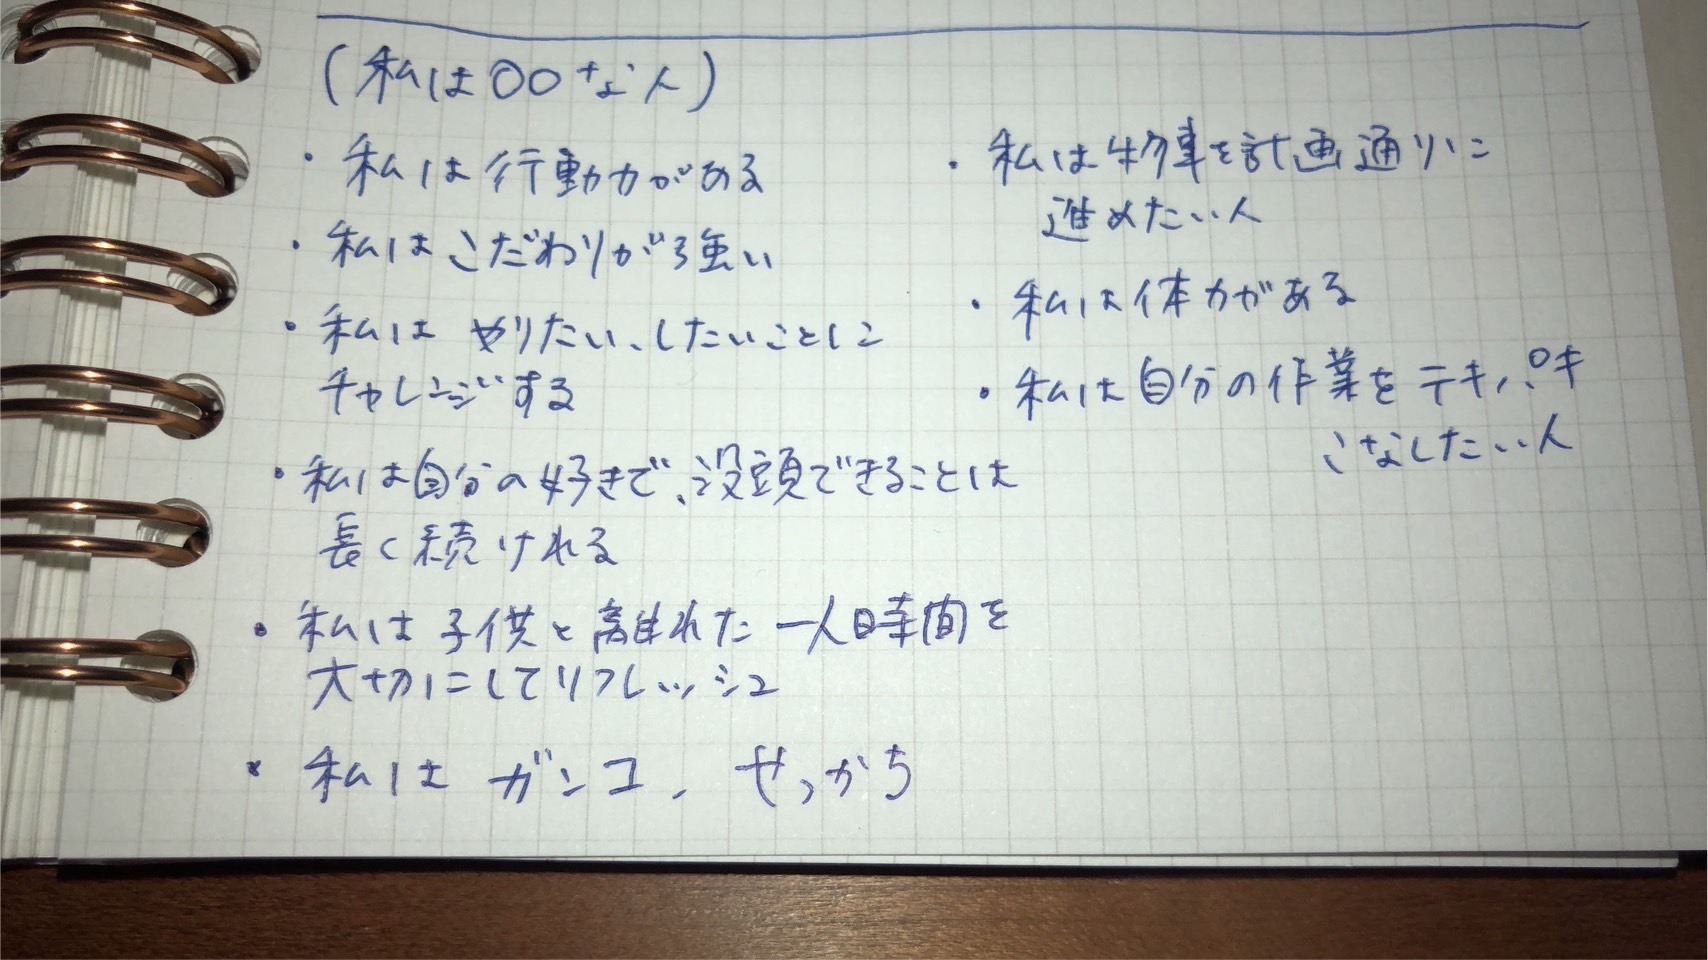 (私は〇〇な人)
・私は行動力がある
・私はこだわりが強い
・私は やりたい、したいことに
チャレンジする
・私は自分の好きで、没頭できることは
長く続けれる
・私は子供と離れた一人時間を
大切にしてリフレッシュ
・私は ガンコ、せっかち
・私は物事を計画通りに
進めたい人
・私は体力がある
・私は自分の作業をテキパキ
こなしたい人